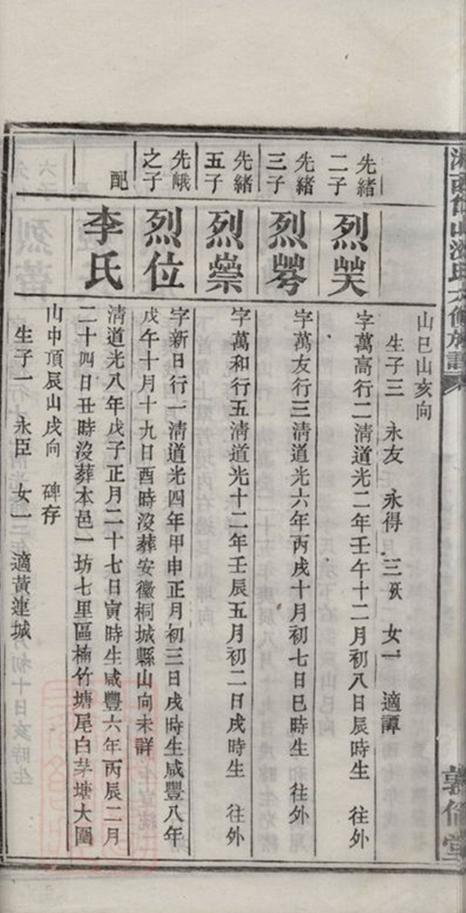 山巳亥向
生子三 永友 永得 三 女一 適譚
先緒二子
烈煐 字萬高行二清道光二年壬午十二月初八日辰時生 往外
先緒三子
字萬友行三清道光六年丙戌十月初七日巳時生 往外
先緒五子
烈 字萬和行五清道光十二年壬辰五月初二日戌時生 往外
先峨之子
烈位 字新日行一清道光四年甲申正月初三日戌時生咸豐八年
戊午十月十九日酉時沒葬安徽桐城縣山向未詳
配
李氏 清道光八年戊子正月二十七日寅時生咸豐六年丙辰二月
二十四日丑時沒葬本邑一坊七里區楠竹塘尾白茅塘大圓
山中項辰山戌向 碑存
生子一 永臣 女一 適黃蓮城
敦倫堂